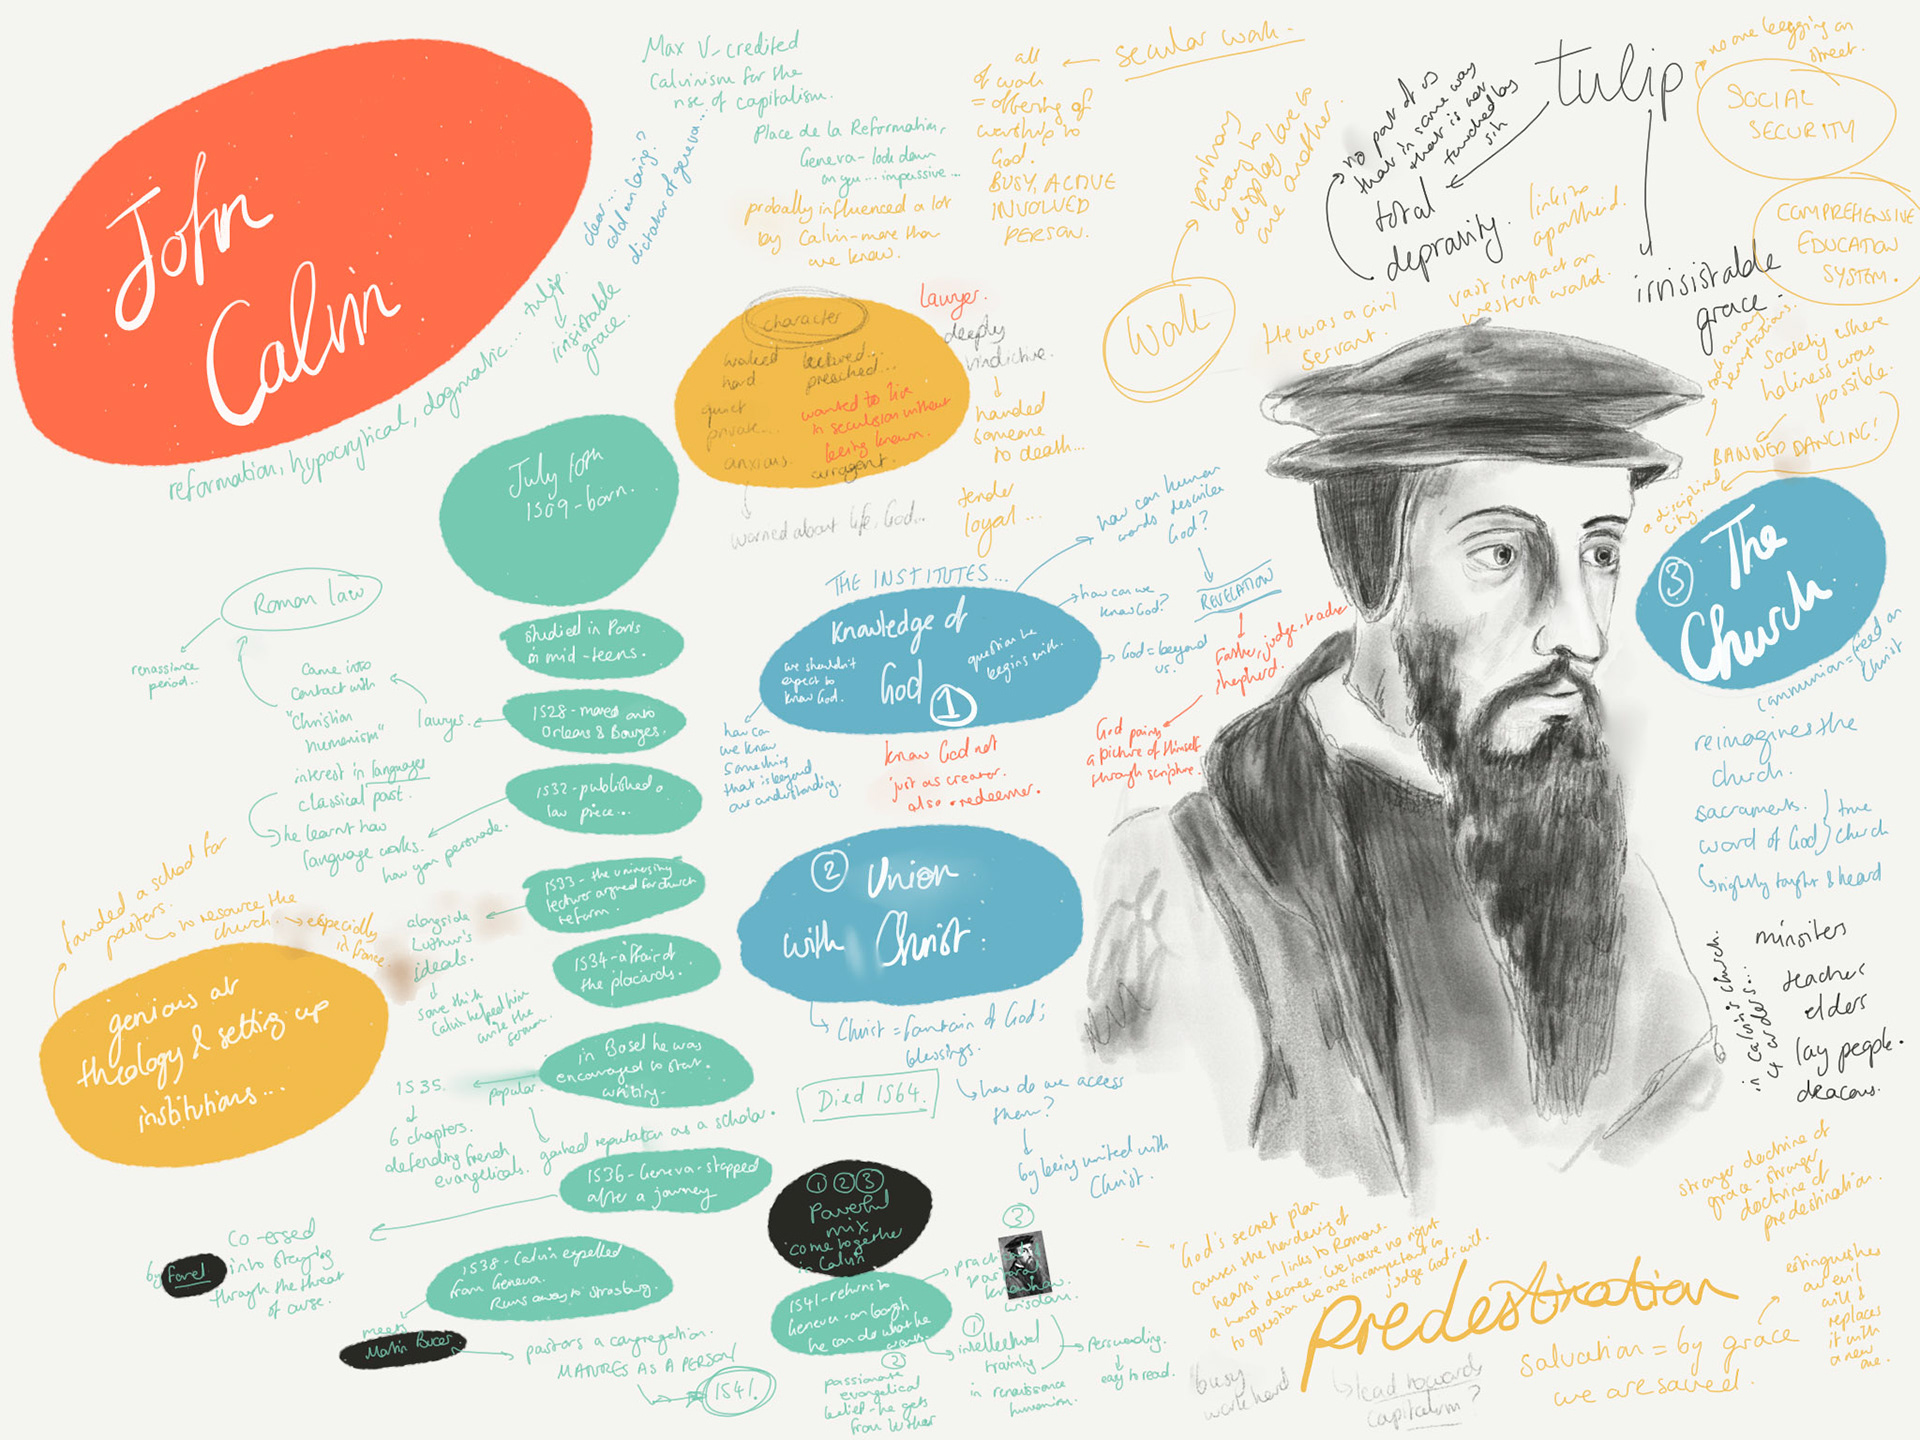 John
Calvin
reformation, hypocrytical, dogmatic...
tulip.
irrisistable
grace.
clear...
cold unloving?
dictator of geneva...
Max V-credited
Calvinism for the
rise of capitalism.
Place de la Reformation,
Geneva - look down
on you... impassive...
probally influenced a lot
by Calvin - more than
we know.
all
of work
= offering of
worship to
God.
BUSY, ACTIVE
INVOLVED
PERSON.
secular work.
Work
primary
way we
display love to
one another.
tulip
no part of us
that in same way
that is not
touched by
sin
total
depravity.
irrisistable
grace.
no one begging on
street.
SOCIAL
SECURITY
COMPREHENSIVE
EDUCATION
SYSTEM.
links to
apartheid.
vast impact on
western world.
He was a civil
servant.
took away
temptations.
Society where
holiness was
possible.
BANNED DANCING!
a disciplined
city.
character
worked
hard
lectured...
preached...
quiet
private...
wanted to live
in seculsion without
being known.
anxious.
arragent.
worried about life, God...
lawyer.
deeply
vindictive.
handed
someone
to death...
tender
loyal...
July 10th
1509 - born.
studied in Paris
in mid-teens.
1528 - moved onto
Orleans & Bourges.
lawyer.
Came into
contact with
"Christian
humanism"
Roman law
renassiance
period...
interest in languages
classical past.
he learnt how
language works.
how you persuade.
1532 - published a
law piece...
1533 - the university
lecture argued for church
reform.
alongside
Luther's
ideals.
some think
Calvin helped him
write the
sermon.
1534 - affair of
the placards.
in Basel he was
encouraged to start
writing.
popular.
1535.
6 chapters.
defending french
evangelicals.
gained reputation as a scholar.
1536 - Geneva - stopped
after a journey
Co-ersed
into staying
through the threat
of curse.
by Farel.
1538 - Calvin expelled
from Geneva.
Runs away to Strasburg.
meets
Martin Bucer
pastors a congregation.
MATURES AS A PERSON
1541.
founded a school for
pastors.
to resource the
church.
especially
in france.
genious at
theology & setting up
institutions...
THE INSTITUTES...
Knowledge of
God
1
we shouldn't
expect to
know God.
question he
begins with...
how can human
words describe
God?
how can we
know God?
REVELATION
God = beyond
us.
Father, judge, teacher
shepherd.
God paints
a picture of Himself
through scripture.
how can
we know
something
that is beyond
our understanding.
know God not
just as creator.
also redeemer.
2 Union
with Christ.
Christ = fountain of God's
blessings.
how do we access
them?
by being united with
Christ.
Died 1564.
1 2 3
Powerful
mix
come together
in Calvin
1541 - returns to
Geneva - on
he can do what he
wants.
3
wisdom.
1
intellectual
training
in renaissance
humanism.
persuading.
easy to read.
2
passionate
evangelical
belief - he gets
from luther
3 The
Church.
communion = feed on
Christ
reimagines the
church.
sacraments.
word of God
true
church
rightly taught & heard
in Calvin's church.
4 orders...
minsiters
teacher
elders
lay people.
deacons.
stronger doctrine of
grace - stronger
doctrine of
predestination.
"God's secret plan
causes the hardening of
hearts" - links to Romans.
a hard decree. We have no right
to question we are incompetant to
judge God's will.
Predestination
busy
work hard
lead towards
capitalism?
salvation = by grace
we are saved.
extinguishes
our evil
will &
replaces
it with
a new
one.